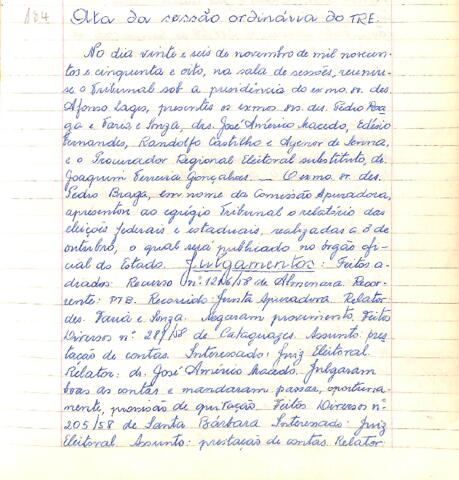 184
Ata da sessão ordinária do TRE.
No dia vinte e seis de novembro de mil novecen-
tos e cinquenta e oito, na sala de sessões, reuniu-
se o Tribunal sob a presidência do exmo. sr. des.
Afonso Lages, presentes os exmos. srs. des. Pedro Bra-
ga e Faria e Souza, drs. José Américo Macedo, Edésio
Fernandes, Randolfo Castilho e Agenor de Senna,
e o Procurador Regional Eleitoral substituto, dr.
Joaquim Ferreira Gonçalves. — O exmo. sr. des.
Pedro Braga, em nome da Comissão Apuradora,
apresentou ao egrégio Tribunal o relatório das
eleições federais e estaduais, realizadas a 3 de
outubro, o qual será publicado no órgão ofi-
cial do Estado. Julgamentos: Feitos a-
diados: Recurso nº 1216/58 de Almenara. Recor-
rente: PTB. Recorrido: Junta Apuradora. Relator
des. Faria e Souza. Negaram provimento. Feitos
Diversos nº 281/58 de Cataguazes. Assunto: pres-
tação de contas. Interessado: Juiz Eleitoral.
Relator: dr. José Américo Macedo. Julgaram
boas as contas e mandaram passar, oportuna-
mente, provisão de quitação. Feitos Diversos nº
205/58 de Santa Bárbara Interessado: Juiz
Eleitoral Assunto: prestação de contas. Relator: